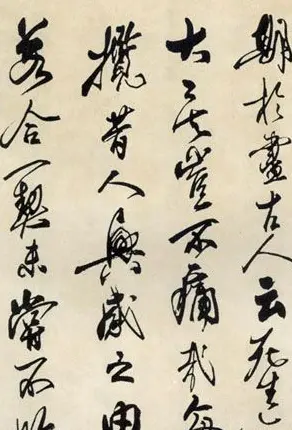 期於盡古人云死生
大矣豈不痛哉每
攬昔人興感之由
若合一契未嘗不臨